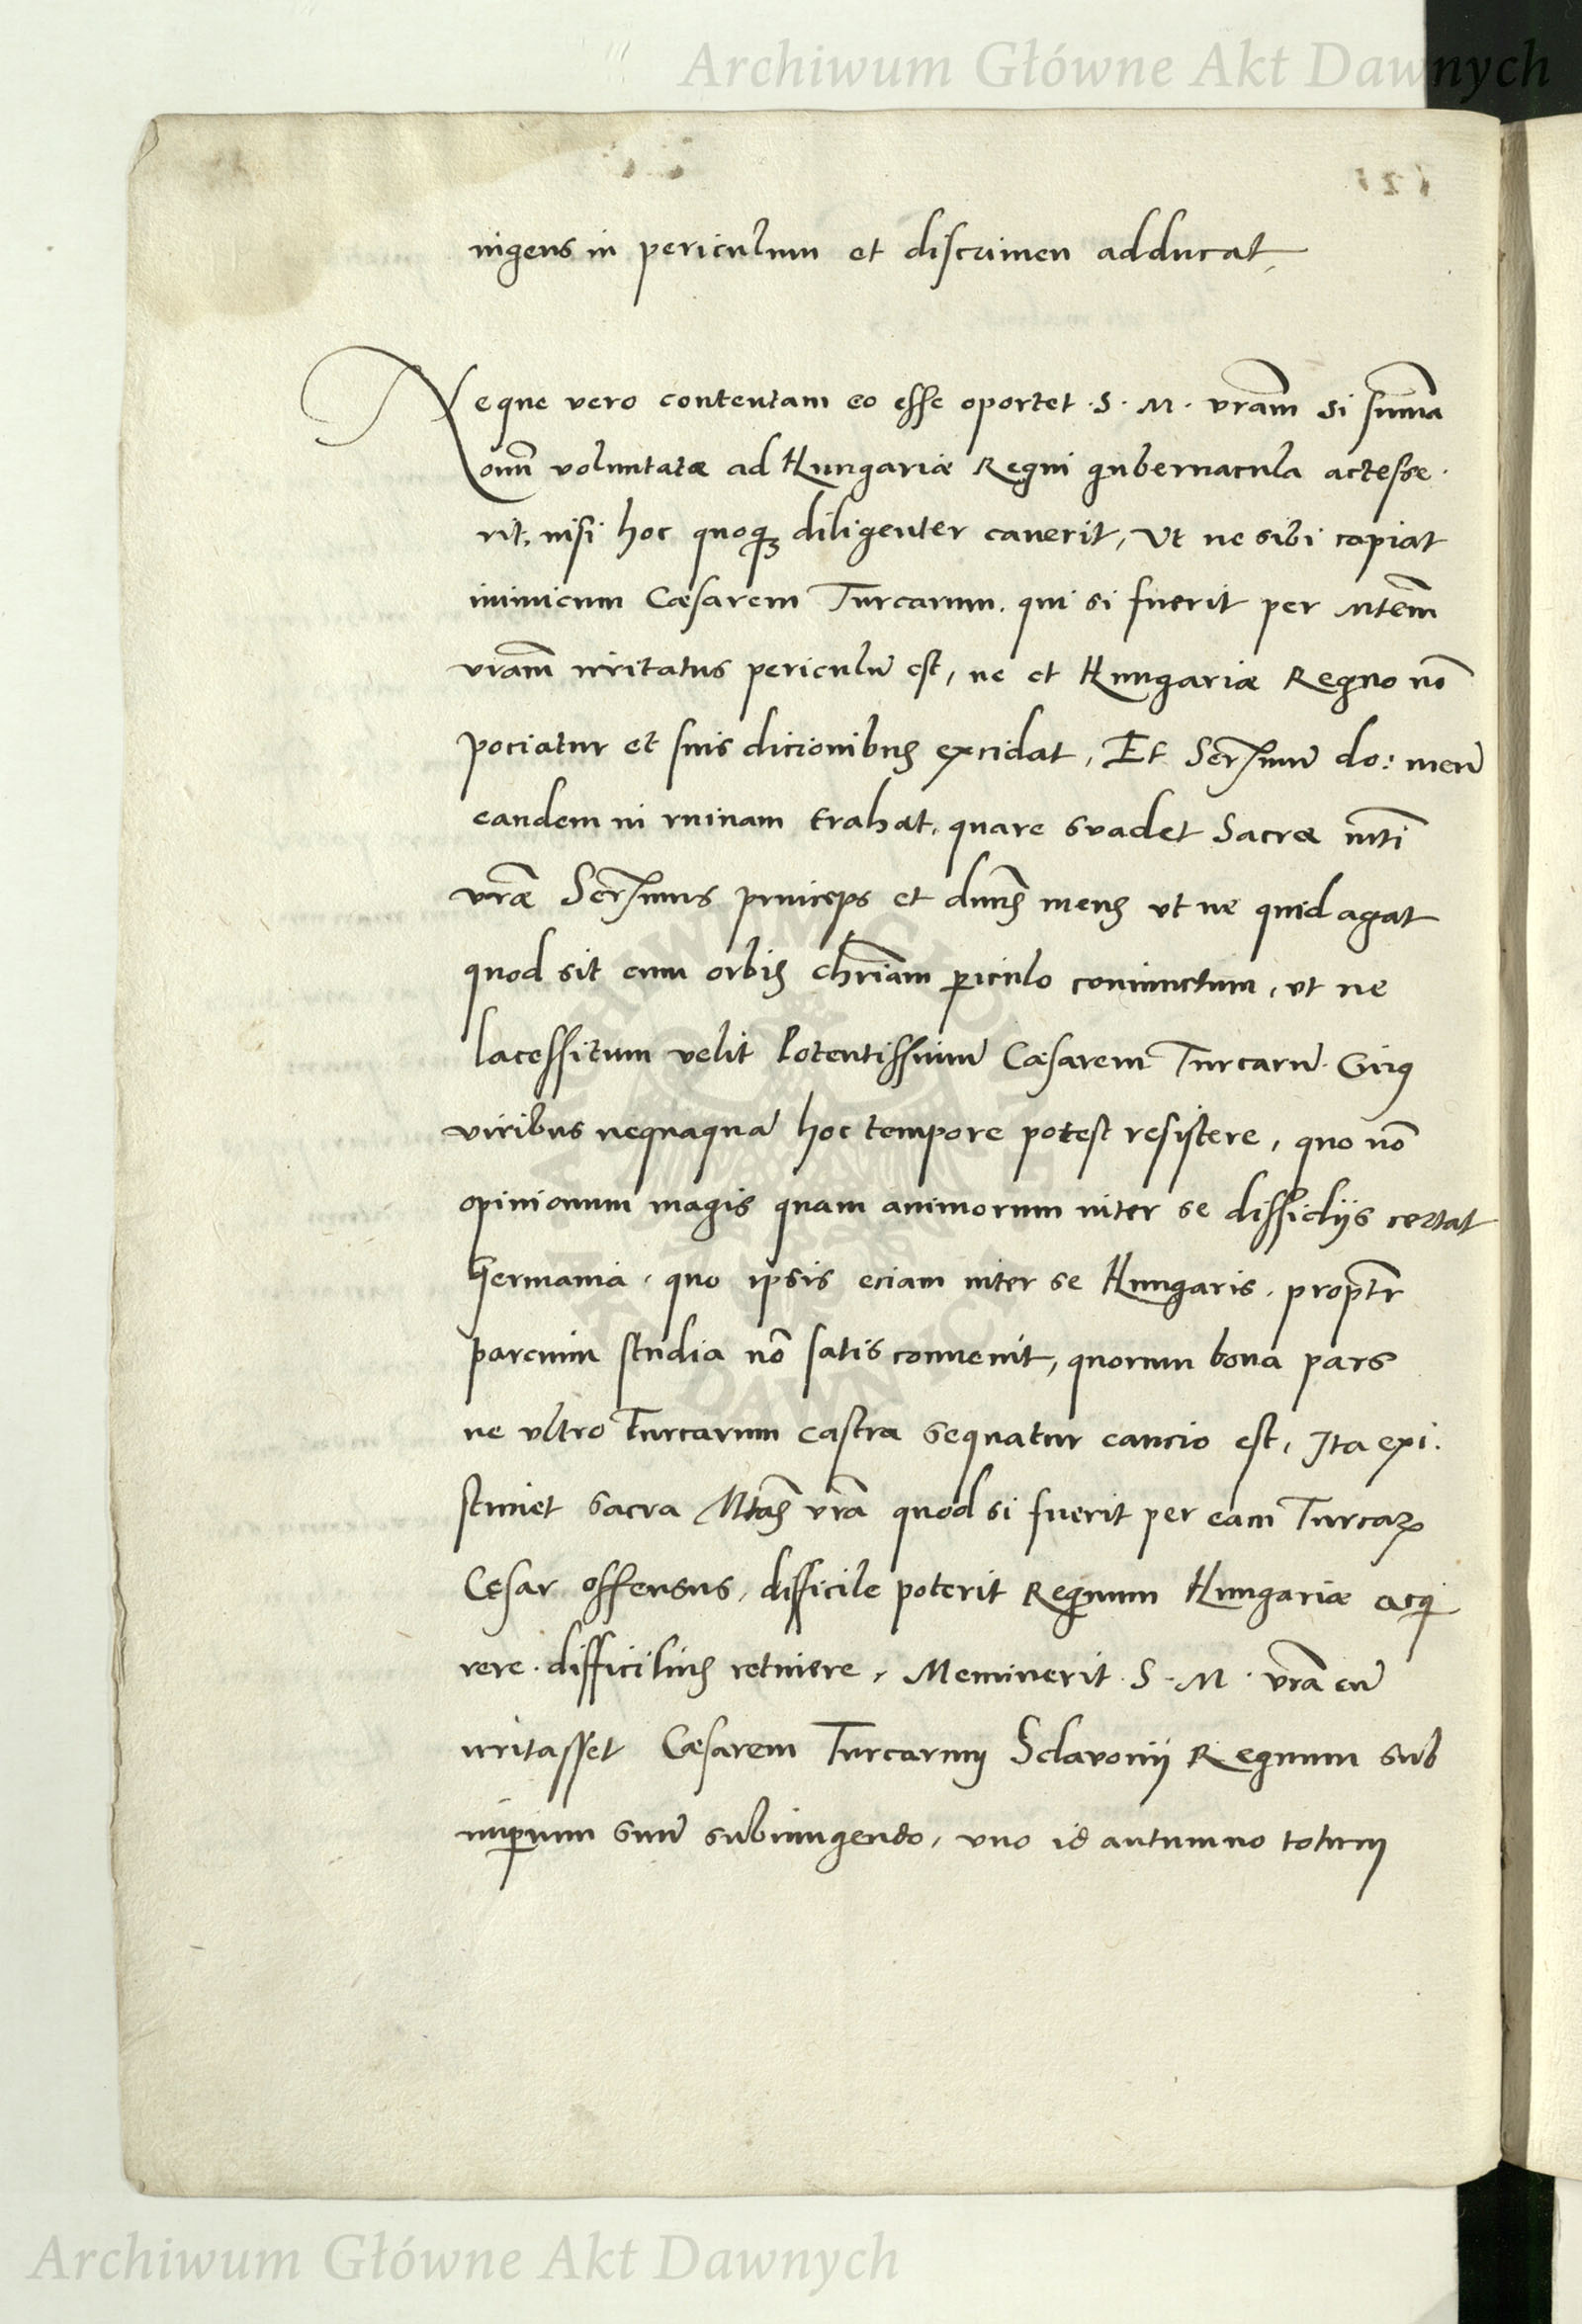 Archiwum Główne Akt Dawnych
ingens in periculum et discrimen adducat,
Neque vero contentam eo esse oportet . S . M . vram̃ si sum̃a
oim̃ voluntatæ ad Hungariæ Regni gubernacula accesse.
rit, nisi hoc quoqȝ diligenter caverit, Ut ne sibi capiat
inimicum Cæsarem Turcarum. qui si fuerit per Mtem̃
vram̃ irritatus periculũ est, ne et Hungariæ Regno nõ
pociatur et suis dicionibus excidat, Et Serssimũ do: meũ
eandem in ruinam trahat, quare svadet Sacræ mti
vræ Serssimus princeps et dnus meus ut ne quid agat
quod sit cum orbis chriani periculo coniunctum, ut ne
lacessitum velit Potentissimũ Cæsarem Turcarũ. Cuius
viribus nequaquã hoc tempore potest resistere, quo nõ
opinionum magis quam animorum inter se dissidiis certat
Germania, quo ipsis eciam inter se Hungaris, proptr
parcium studia nõ satis convenit, quorum bona pars
ne ultro Turcarum castra sequatur caucio est, Ita exi.
stimet sacra Mtas vra quod si fuerit per eam Turcaꝝ
Cęsar offensus, difficile poterit Regnum Hungariæ acqi
rere . difficilius retinere, Meminerit . S . M . vra cũ
irritasset Cæsarem Turcarum Sclavonii Regnum sub
imperium suũ subiungendo, uno id autumno totum
Archiwum Główne Akt Dawnych